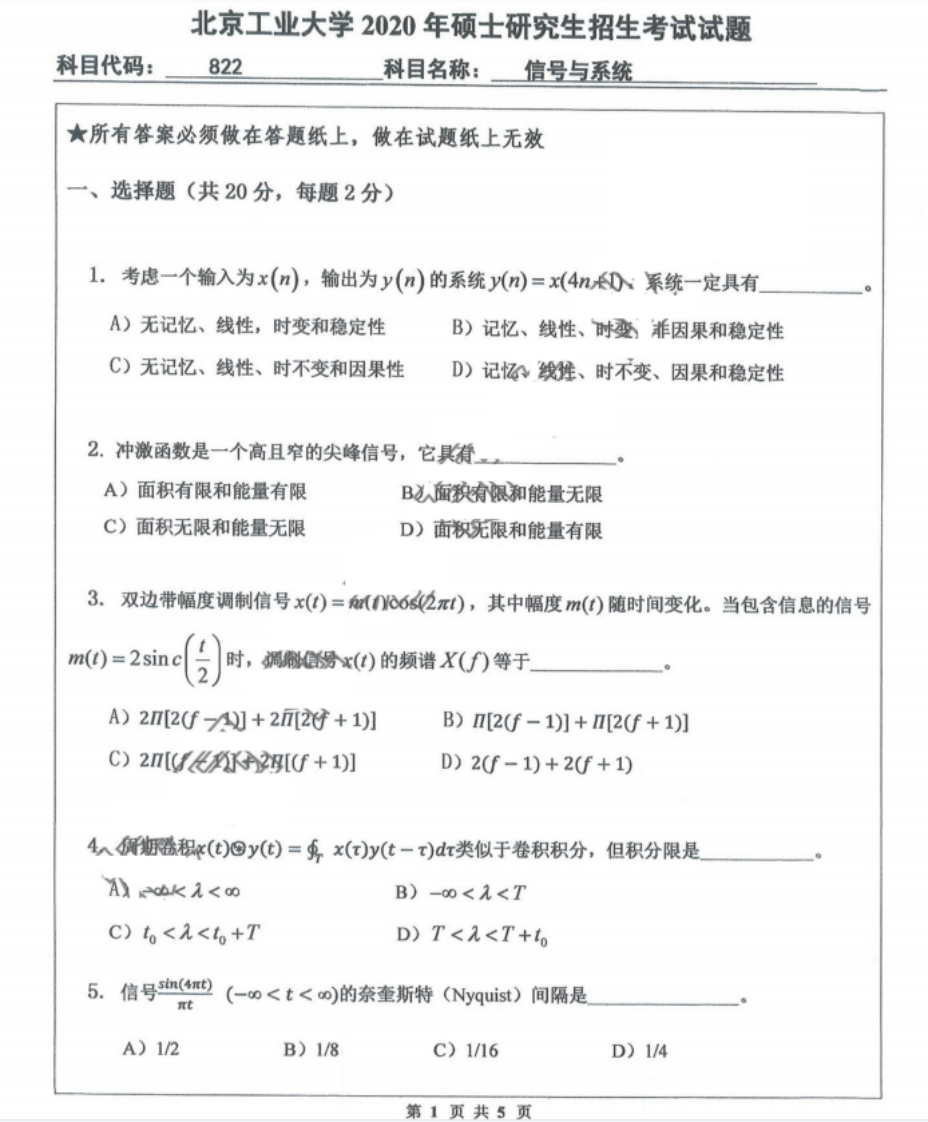 北京工业大学 2020 年硕士研究生招生考试试题
科目代码： 822 科目名称： 信号与系统
★所有答案必须做在答题纸上，做在试题纸上无效
一、选择题（共 20 分，每题 2 分）
1. 考虑一个输入为 x(n)，输出为 y(n) 的系统 y(n) = x(4n+1)、系统一定具有____________。
A）无记忆、线性，时变和稳定性 B）记忆、线性、时变、非因果和稳定性
C）无记忆、线性、时不变和因果性 D）记忆、线性、时不变、因果和稳定性
2. 冲激函数是一个高且窄的尖峰信号，它具有____________。
A）面积有限和能量有限 B）面积有限和能量无限
C）面积无限和能量无限 D）面积无限和能量有限
3. 双边带幅度调制信号 x(t) = m(t)cos(2πt)，其中幅度 m(t) 随时间变化。当包含信息的信号
m(t) = 2sinc(t/2) 时，调制信号 x(t) 的频谱 X(f) 等于____________。
A）2Π[2(f − 1)] + 2Π[2(f + 1)] B）Π[2(f − 1)] + Π[2(f + 1)]
C）2Π[(f − 1)] + 2Π[(f + 1)] D）2(f − 1) + 2(f + 1)
4. 周期卷积x(t)⊛y(t) = ∮_T x(τ)y(t − τ)dτ类似于卷积积分，但积分限是____________。
A）−∞ < λ < ∞ B）−∞ < λ < T
C）t₀ < λ < t₀ + T D）T < λ < T + t₀
5. 信号sin(4πt)/πt (−∞ < t < ∞)的奈奎斯特（Nyquist）间隔是____________。
A）1/2 B）1/8 C）1/16 D）1/4
第 1 页 共 5 页